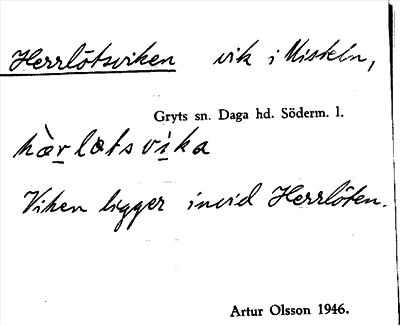 Herrlötsviken vik i Misteln,
Gryts sn. Daga hd. Söderm. l.
hæ̀r̲løtsvi̲ka
Viken ligger invid Herrlöten.
Artur Olsson 1946.